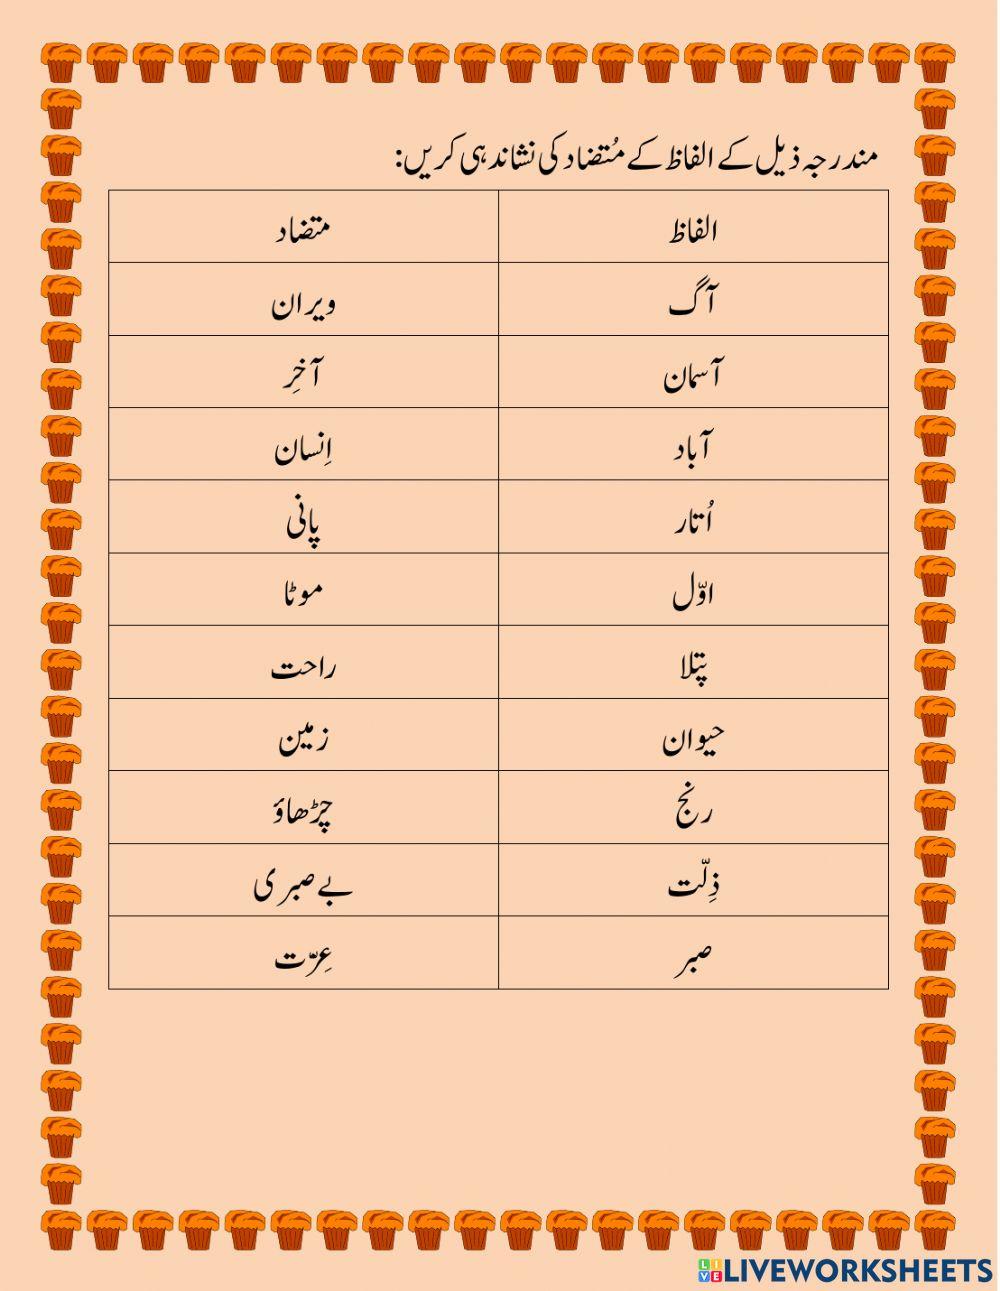 مندرجہ ذیل کے الفاظ کے مُتضاد کی نشاندہی کریں:
الفاظ متضاد
آگ ویران
آسمان آخِر
آباد اِنسان
اُتار پانی
اوّل موٹا
پتلا راحت
حیوان زمین
رنج چڑھاؤ
ذِلّت بے صبری
صبر عِزّت
LIVEWORKSHEETS